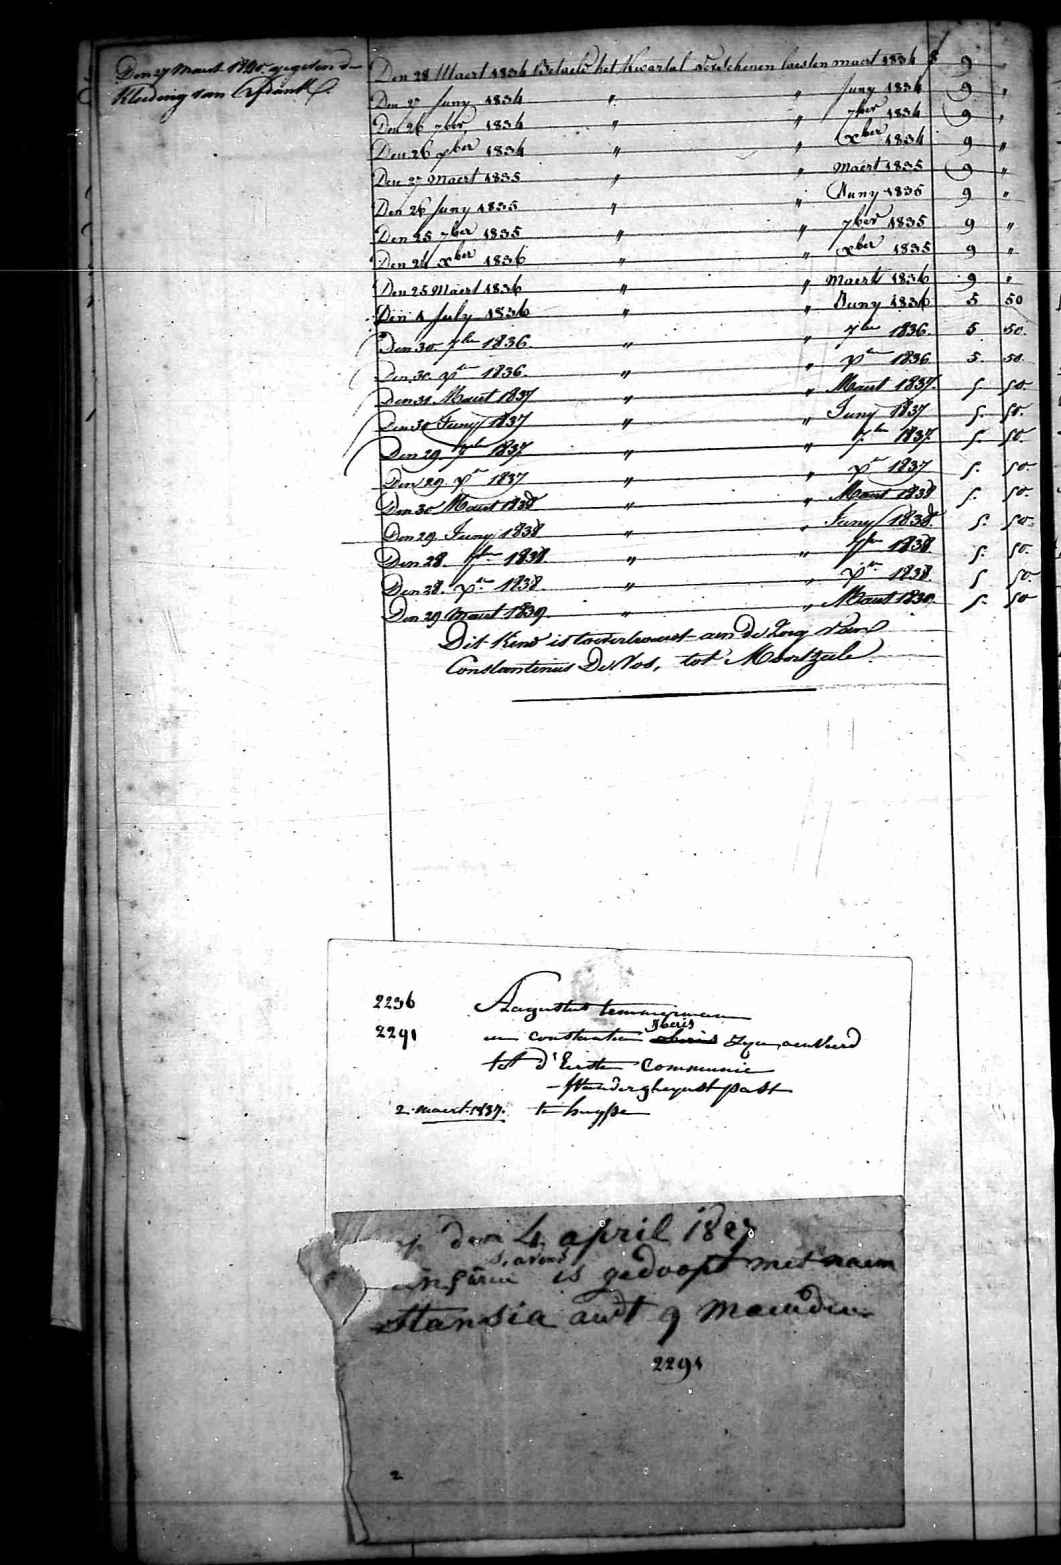 Den 27 Maert gegeven de
Kleeding van
Den 28 Maert 1834 Betaeld het Kwartal verschenen laesten maert 1834 9 "
Den 27 Juny 1834 " " Juny 1834 9 "
Den 26 7ber 1834 " " 7ber 1834 9 "
Den 26 xber 1834 " " xber 1834 9 "
Den 27 Maert 1835 " " Maert 1835 9 "
Den 26 Juny 1835 " " Juny 1835 9 "
Den 25 7ber 1835 " " 7ber 1835 9 "
Den 24 xber 1836 " " xber 1835 9 "
Den 25 Maert 1836 " " Maert 1836 9 "
Den 1 July 1836 " " Juny 1836 5 50
Den 30 7ber 1836. " " 7ber 1836. 5 50.
Den 30. xer 1836. " " xer 1836 5. 50.
Den 31. Maert 1837 " " Maert 1837. 5 50.
Den 30 Juny 1837 " " Juny 1837 5. 50.
Den 29 7ber 1837. " " 7ber 1837. 5. 50.
Den 29 xer 1837 " " xer 1837 5. 50
Den 30 Maert 1838 " " Maert 1838 5. 50.
Den 29 Juny 1838 " " Juny 1838. 5. 50.
Den 28. 7ber 1838. " " 7ber 1838 5. 50.
Den 28. xer 1838. " " xer 1838. 5 50.
Den 29 Maert 1839. " " Maert 1839. 5. 50
Dit Kind is toevertrouwt aen de Zorg van
Constantinus De Vos, tot Moortzeele.
2236 Augustus temmerman
2291 en constantia zyn aenveerd
tot d'Eerste Communie
Vandergheynst past
2. maert. 1837. te huysse
den 4 april
is gedoopt met naem
stansia audt 9 maenden
2291
2